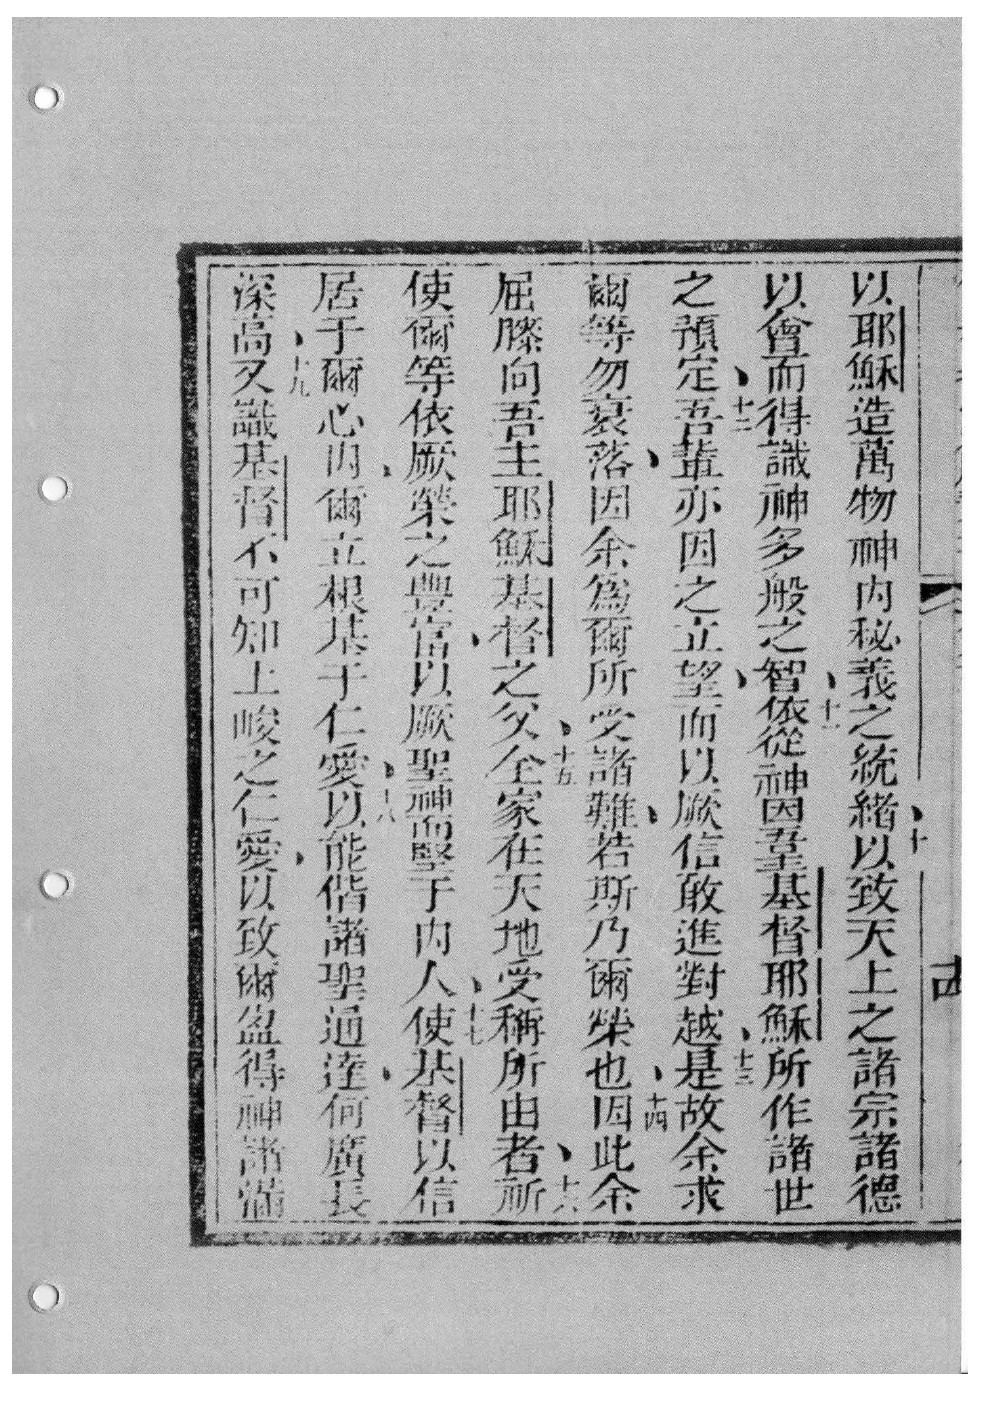 以耶穌造萬物神內秘義之統緒、十以致天上之諸宗諸德
以會而得識神多般之智、十一依從神因吾主基督耶穌所作諸世
之預定、十二吾輩亦因之立望、而以厥信敢進對越、十三是故余求
爾等勿衰落、因余為爾所受諸難、若斯乃爾榮也、十四因此余
屈膝向吾主耶穌基督之父、十五全家在天地受稱所由者、十六祈
使爾等依厥榮之豐富、以厥聖神而堅于內人、十七使基督以信
居于爾心內、爾立根基于仁愛、十八以能偕諸聖通達、何廣長
深高、十九又識基督不可知上峻之仁愛、以致爾盈得神諸滿